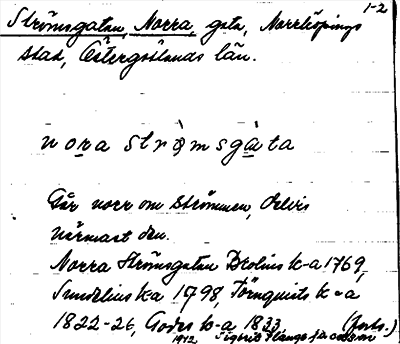 1-2
Strömsgatan, Norra, gata, Norrköpings
stad, Östergötlands län.
nora strömsgata
Går norr om strömmen, delvis
närmast den.
Norra Strömsgatan Brolins k-a 1769,
Sundelius k-a 1798, Törnquists k-a
1822-26, Godes k-a 1833 (forts.)
1942 Sigbrit Plænge